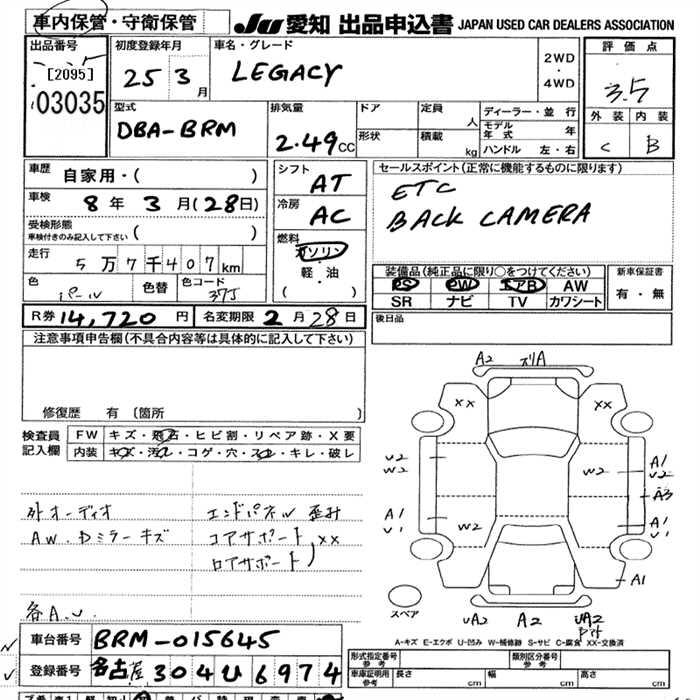 車内保管・守衛保管
JU 愛知 出品申込書 JAPAN USED CAR DEALERS ASSOCIATION
出品番号
[2095]
03035
初度登録年月
25 3月
車名・グレード
LEGACY
2WD
・
4WD
評価点
3.5
外装 内装
C B
型式
DBA-BRM
排気量
2.49cc
ドア
形状
定員 人
積載 kg
ディーラー・並行
モデル年式 年
ハンドル 左・右
車歴
自家用・( )
車検
8年 3月(28日)
受検形態
車検付きのみ記入して下さい ( )
走行
5万7千407km
色
パール
色替
色コード
37J
シフト
AT
冷房
AC
燃料
ガソリン
・
軽・油
( )
セールスポイント(正常に機能するものに限ります)
ETC
BACK CAMERA
装備品(純正品に限り○をつけてください)
PS PW エアB AW
SR ナビ TV カワシート
新車保証書
有・無
R券 14,720円 名変期限 2月28日
後日品
注意事項申告欄(不具合内容等は具体的に記入して下さい)
修復歴 有 〔箇所 〕
検査員
記入欄
FW キズ・飛石・ヒビ割・リペア跡・X要
内装 キズ・汚れ・コゲ・穴・スレ・キレ・破レ
外オーディオ
AW・Dミラーキズ
エンドパネル 歪み
コアサポート
ロアサポート
XX
各A.U.
A2 ズリA
XX XX
U2
W2
W2
A1
U1
W2
A1
U1
A3
A1
U1
A1
スペア
UA2 A2 UA2
A-キズ E-エクボ U-凹み W-補修跡 S-サビ C-腐食 XX-交換済
車台番号 BRM-015645
登録番号 名古屋 304 ひ 6974
形式指定番号
参考
類別区分番号
参考
車庫証明用
参考
長さ cm 幅 cm 高さ cm